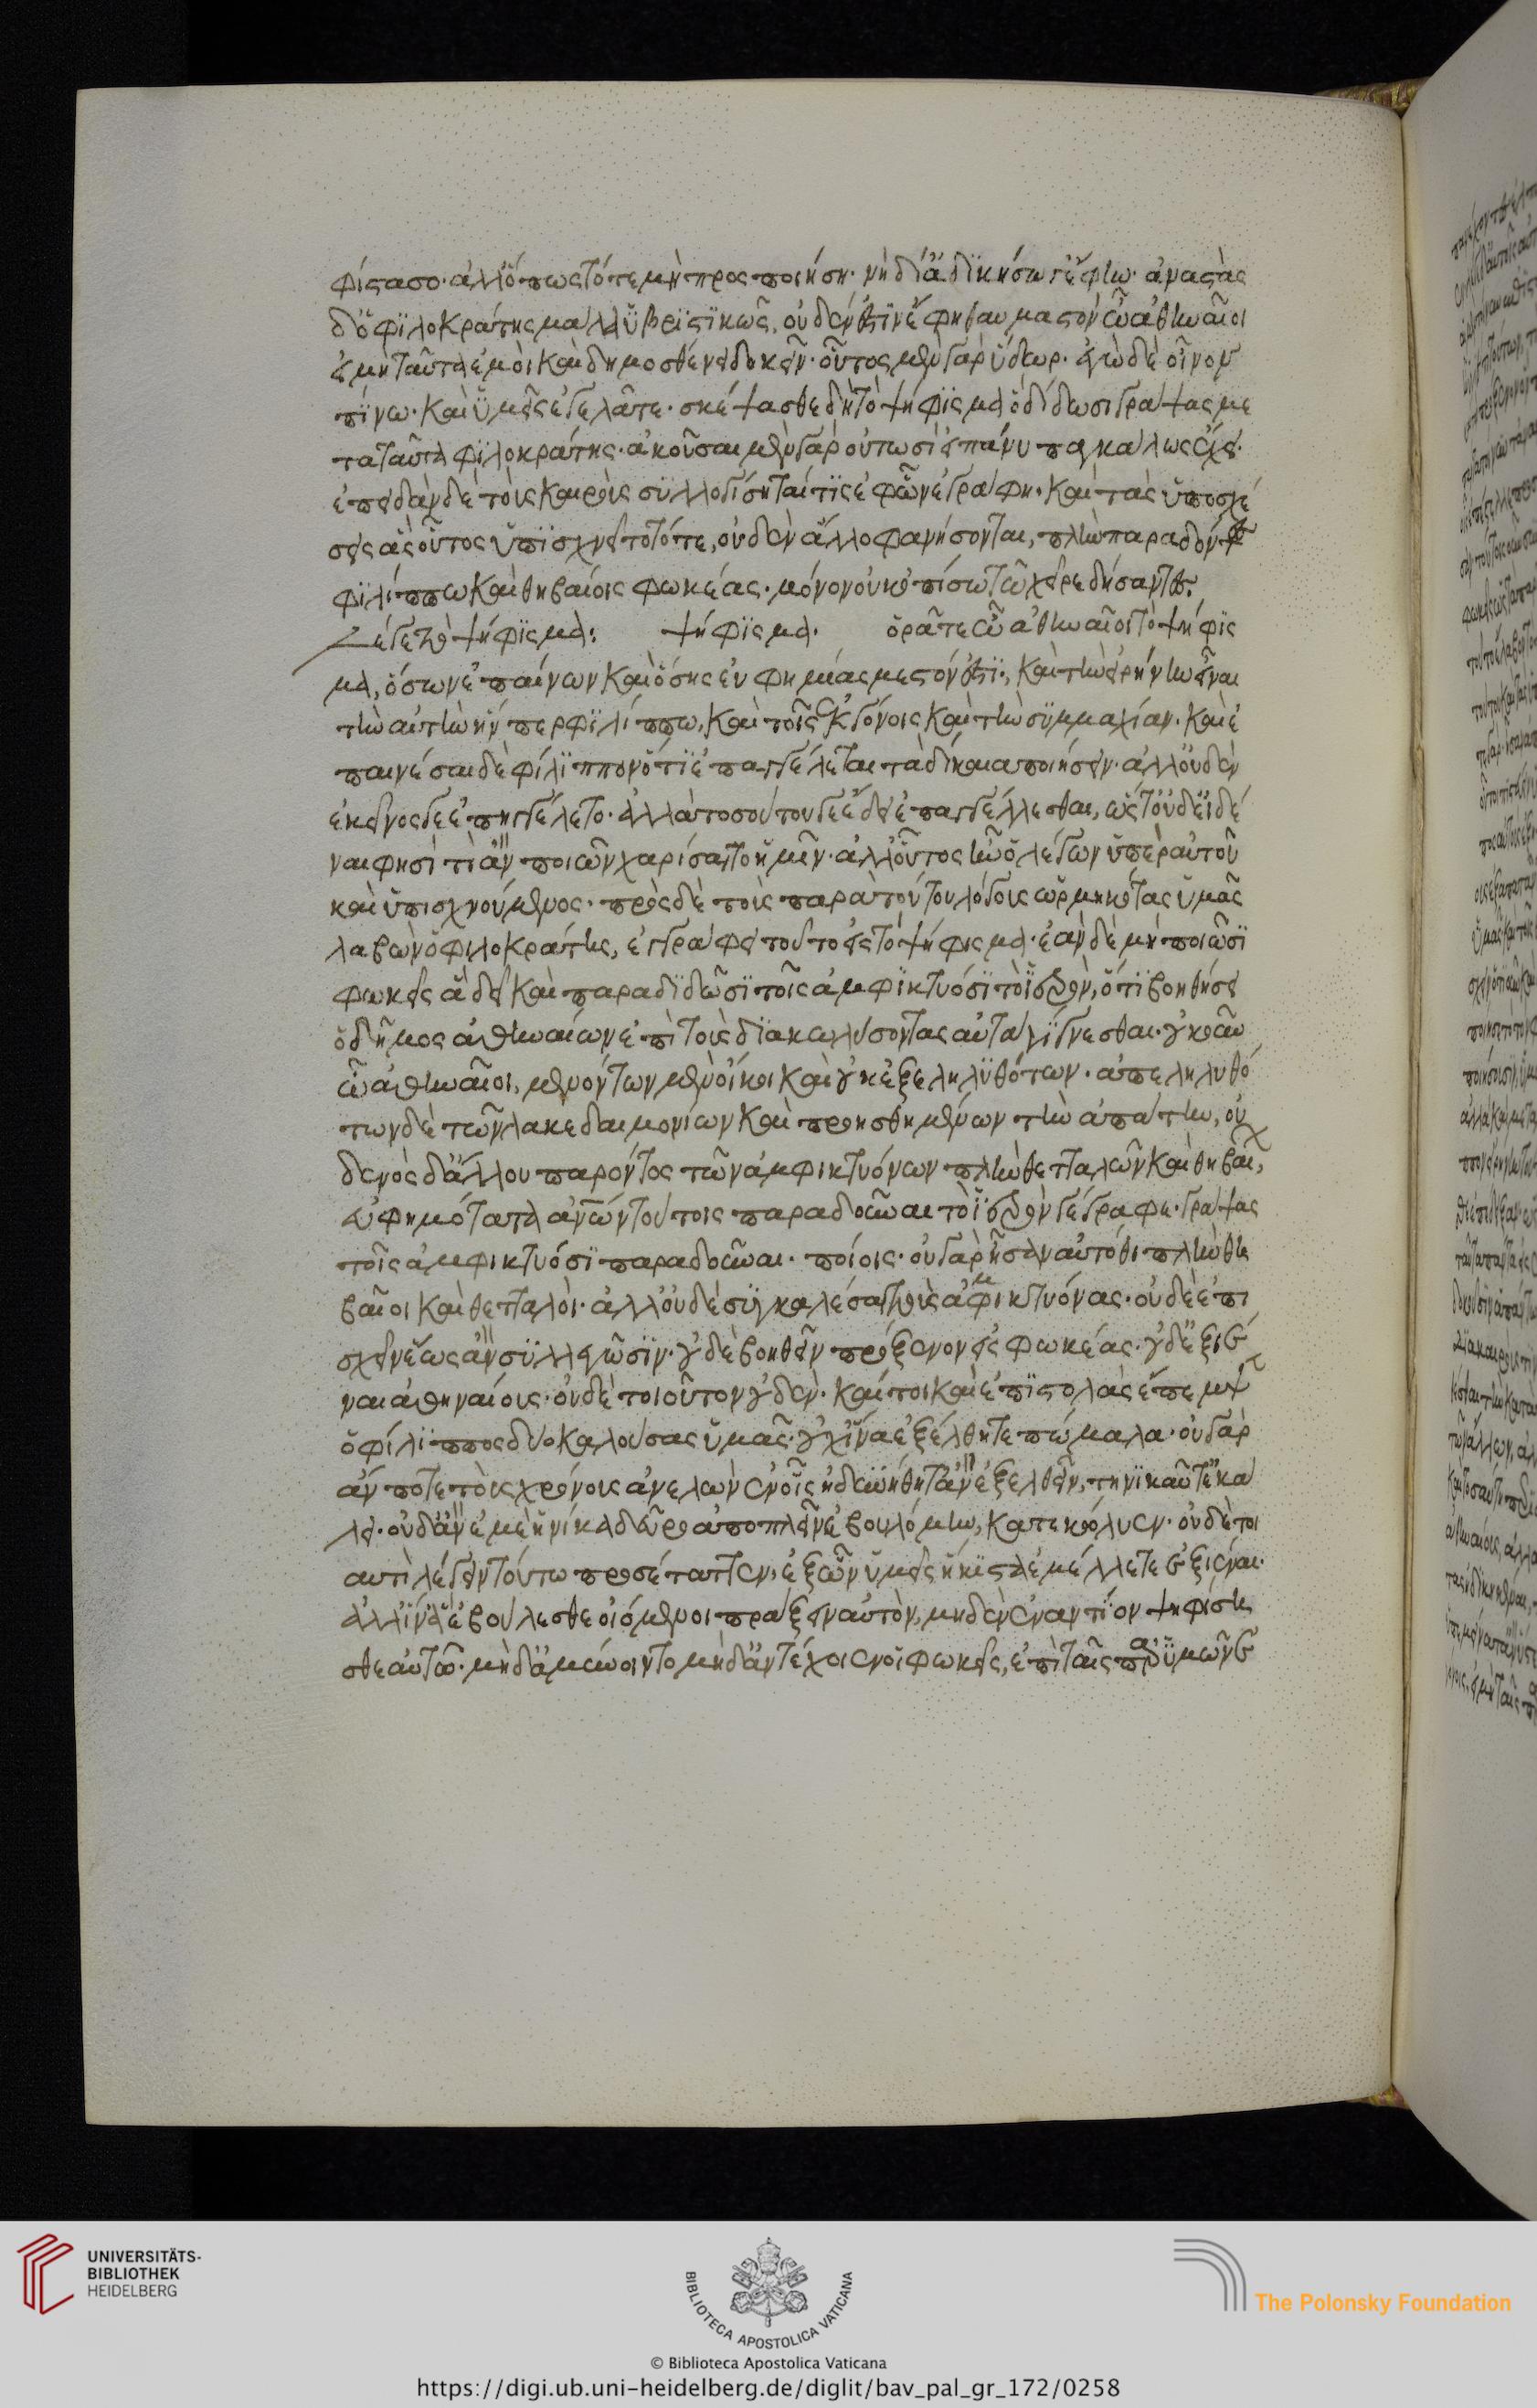 φίστασο· ἀλλ' ὅπως τότε μὴ προσποιήση· νὴ δία δϊκήσω γ' ἔφην· ἀναστὰς
δ' ὁ φϊλοκράτης μάλλ' ὑβρϊστϊκῶς, οὐδὲν ἐστὶν ἔφη θαυμαστὸν ὦ ἀθηναῖοι
εἰ μὴ ταῦτα ἐμοὶ καὶ δημοσθένει δοκεῖν· οὗτος μὲν γὰρ ὕδωρ· ἐγὼ δὲ οἶνον
πίνω· καὶ ὑμεῖς ἐγελᾶτε· σκέψασθε δὴ τὸ ψήφϊσμα ὃ δίδωσι γράψας με
τὰ ταῦτα φϊλοκράτης· ἀκοῦσαι μὲν γὰρ οὑτωσὶ εἰ πάνυ παγκάλως ἔχει·
ἐπειδὰν δὲ τοὺς καιροὺς συλλογίσηταί τϊς ἐφ' ὧν ἐγράφη· καὶ τὰς ὑποσχέ
σεις ἃς οὗτος ὑπϊσχνεῖτο τότε, οὐδὲν ἄλλο φανήσονται, πλὴν παραδόντες
φϊλίππω καὶ θηβαίοις φωκέας· μόνον οὐκ ὀπίσω τὼ χεῖρε δήσαντες·
Λέγε τὸ ψήφϊσμα: ψήφϊσμα· ὁρᾶτε ὦ ἀθηναῖοι τὸ ψήφϊσ
μα, ὅσων ἐπαίνων καὶ ὅσης εὐφημίας μεστόν ἐστϊ·, καὶ τὴν εἰρήνην εἶναι
τὴν αὐτὴν ἥνπερ φϊλίππω, καὶ τοῖς ἐκγόνοις καὶ τὴν συμμαχίαν· καὶ ἐ
παινέσαι δὲ φίλϊππον ὅτϊ ἐπαγγέλεται τὰ δίκαια ποιήσειν· ἀλλ' οὐδὲν
ἐκεῖνός γε ἐπηγγέλετο· ἀλλὰ τοσούτου γε ἔδει ἐπαγγέλλεσθαι, ὥστ' οὐδ' εἰδέ
ναι φησὶ τί ἂν ποιῶν χαρίσαιτο ἡμῖν· ἀλλ' οὗτος ἦν ὁ λέγων ὑπὲρ αὐτοῦ
καὶ ὑπισχνούμενος· πρὸς δὲ τοὺς παρὰ τούτου λόγους ὡρμηκότας ὑμᾶς
λαβὼν ὁ φιλοκράτης, ἐγγράφει τοῦτο εἰς τὸ ψήφισμα· ἐὰν δὲ μὴ ποιῶσϊ
φωκεῖς ἃ δεῖ καὶ παραδϊδῶσϊ τοῖς ἀμφϊκτυόσϊ τὸ ἱερὸν, ὅτϊ βοηθήσει
ὁ δῆμος ἀθηναίων ἐπὶ τοὺς διακωλύσοντας αὐτὰ γίγνεσθαι· οὐκοῦν
ὦ ἀθηναῖοι, μενόντων μὲν οἴκοι καὶ οὐκ ἐξεληλϋθότων· ἀπεληλυθό
των δὲ τῶν λακεδαιμονίων καὶ προησθημένων τὴν ἀπάτην, οὐ
δενὸς δ' ἄλλου παρόντος τῶν ἀμφικτυόνων πλὴν θετταλῶν καὶ θηβαί,
εὐφημότατα ἀνθρώπων τούτοις παραδοῦναι τὸ ἱερὸν γέγραφε· γράψας
τοῖς ἀμφικτυόσϊ παραδοῦναι· ποίοις· οὐ γὰρ ἦσαν αὐτόθι πλὴν θη
βαῖοι καὶ θετταλοὶ· ἀλλ' οὐδὲ συγκαλέσαι τοὺς ἀμφικτυόνας· οὐδὲ ἐπι
σχεῖν ἕως ἂν συλλεγῶσϊν· οὐδὲ βοηθεῖν πρόξενον εἰς φωκέας· οὐδ' ἐξιέ
ναι ἀθηναίους· οὐδὲ τοιοῦτον οὐδὲν· καίτοι καὶ ἐπϊστολὰς ἔπεμψεν
ὁ φίλϊππος δύο καλούσας ὑμᾶς· οὐχ ἵνα ἐξέλθητε πώμαλα· οὐ γὰρ
ἄν ποτε τοὺς χρόνους ἀνελὼν ἐν οἷς ἠδυνήθητ' ἂν ἐξελθεῖν, τηνϊκαῦτ' ἐκά
λει· οὐδ' ἂν ἐμὲ ἡνίκα δεῦρο ἀποπλεῖν ἐβουλόμην, κατεκώλυεν· οὐδὲ τοι
αυτὶ λέγειν τούτω προσέταττεν, ἐξ ὧν ὑμεῖς ἥκϊστα ἐμέλλετε ἐξιέναι·
ἀλλ' ἵνα ἃ ἐβούλεσθε οἰόμενοι πράξειν αὐτὸν, μηδὲν ἐναντίον ψηφίση
σθε αὐτῶ· μὴδ' ἀμύνοιντο μὴδ' ἀντέχοιεν οἱ φωκεῖς, ἐπὶ ταῖς παρ' ὑμῶν ἐ
UNIVERSITÄTS-
BIBLIOTHEK
HEIDELBERG
BIBLIOTECA APOSTOLICA VATICANA
© Biblioteca Apostolica Vaticana
The Polonsky Foundation
https://digi.ub.uni-heidelberg.de/diglit/bav_pal_gr_172/0258